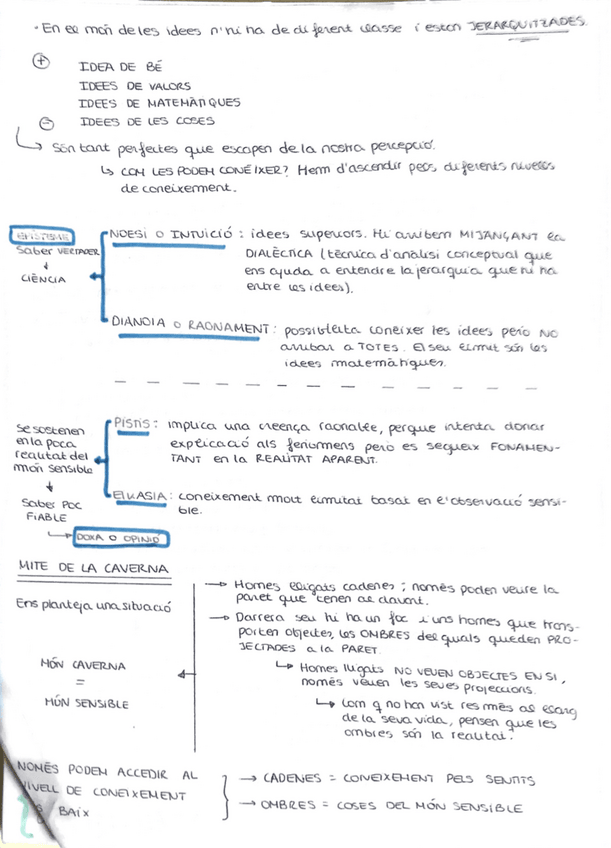 - En el món de les idees n'hi ha de diferent classe i estan JERARQUITZADES.
+
IDEA DE BÉ
IDEES DE VALORS
IDEES DE MATEMÀTIQUES
- IDEES DE LES COSES
Són tant perfectes que escapen de la nostra percepció.
COM LES PODEM CONÈIXER? Hem d'ascendir pels diferents nivells
de coneixement.
saber VERTADER
CIÈNCIA
NOESI O INTUICIÓ: idees superiors. Hi arribem MIJANÇANT la
DIALÈCTICA (tècnica d'anàlisi conceptual que
ens ajuda a entendre la jerarquia que hi ha
entre les idees).
DIANOIA O RAONAMENT: possibilita conèixer les idees però NO
arribar a TOTES. El seu límit són les
idees matemàtiques.
Se sostenen
en la poca
realitat del
món sensible
Saber POC
FIABLE
DOXA O OPINIÓ
PISTIS: implica una creença raonable, perque intenta donar
explicació als fenòmens però es segueix FONAMEN-
TANT en la REALITAT APARENT.
EIKASIA: coneixement molt limitat basat en l'observació sensi-
ble.
MITE DE LA CAVERNA
Ens planteja una situació
MÓN CAVERNA
=
MÓN SENSIBLE
Homes lligats cadenes; només poden veure la
paret que tenen al davant.
Darrera seu hi ha un foc i uns homes que trans-
porten objectes, les OMBRES dels quals queden PRO-
JECTADES a la PARET.
Homes lligats NO VEUEN OBJECTES EN SI,
només veuen les seves projeccions.
Com q no han vist res més al llarg
de la seva vida, pensen que les
ombres són la realitat.
NOMÉS PODEM ACCEDIR AL
NIVELL DE CONEIXEMENT
BAIX
CADENES = CONEIXEMENT PELS SENTITS
OMBRES = COSES DEL MÓN SENSIBLE